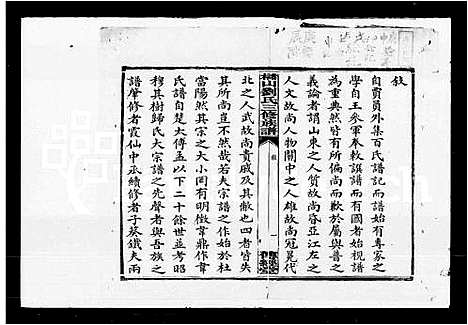 敘
自賈員外集百氏譜記而譜始有專家之
學自王參軍奉敕譔譜而有國者始視譜
為重典然皆有所偏尚而歉於屬與普之
義論者謂山東之人質故尚昏亞江左之
人文故尚人物關中之人雄故尚冠冕代
北之人武故尚貴戚及其敝也四者皆失
其所尚豈不然哉若夫宗譜之作始於杜
當陽然其宗之大小罔有明徵韋鼎作韋
氏譜自楚太傅孟以下二十餘世並考昭
穆其樹歸氏大宗譜之先聲者與吾族之
譜肇修者霞仙中丞續修者子葵鐵夫兩
劉氏三修族譜
敘
一